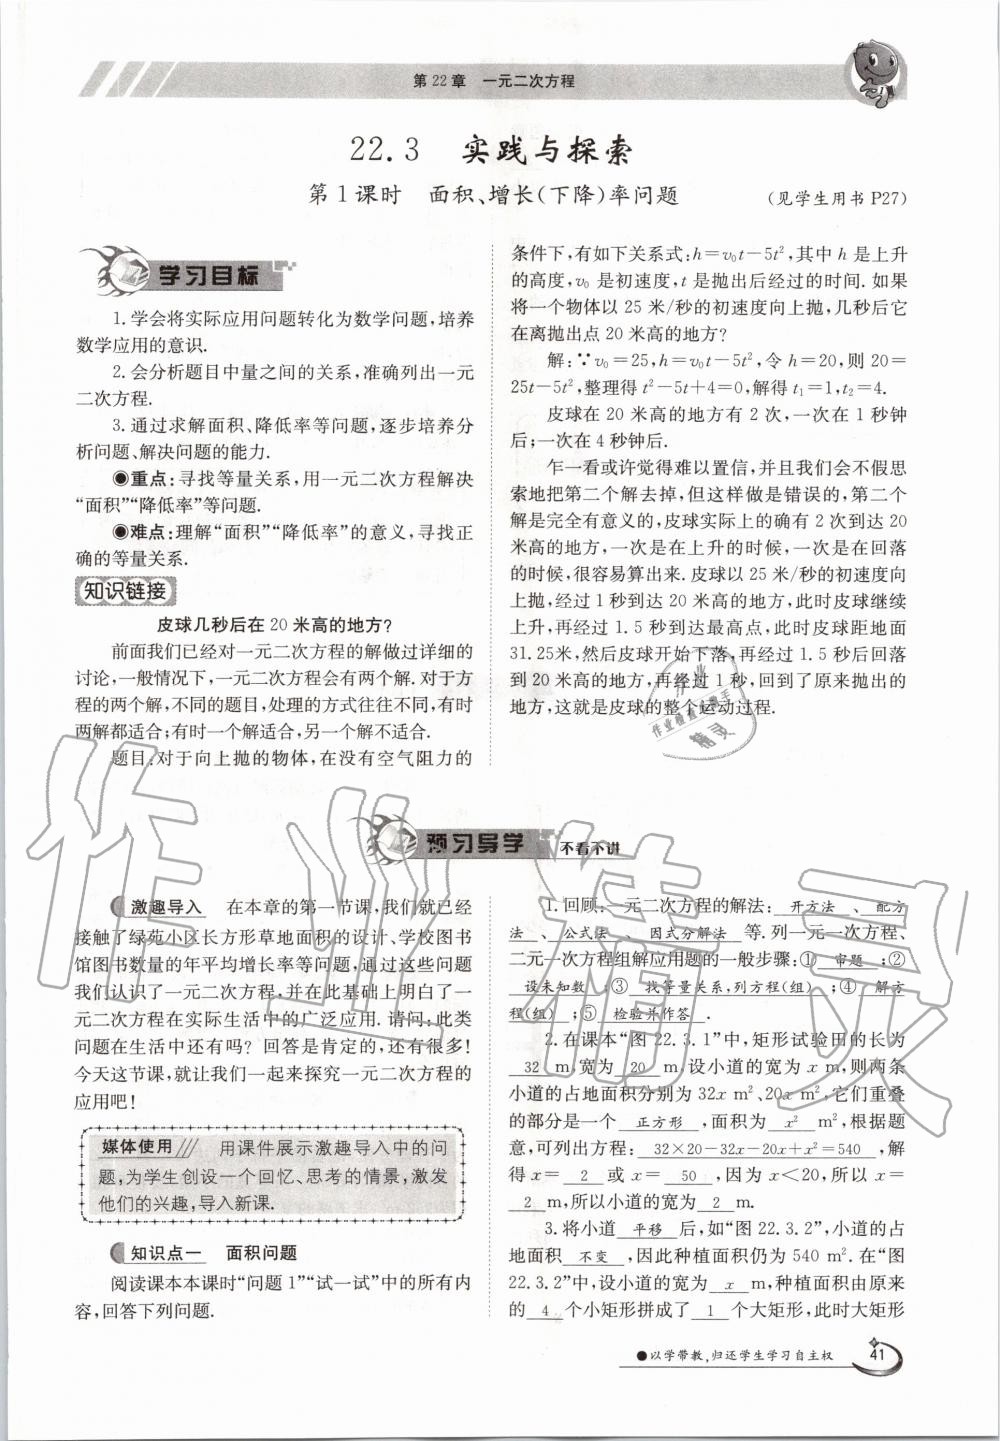 第22章　一元二次方程
22.3　实践与探索
第1课时　面积、增长(下降)率问题
(见学生用书 P27)
学习目标
1.学会将实际应用问题转化为数学问题,培养
数学应用的意识.
2.会分析题目中量之间的关系,准确列出一元
二次方程.
3.通过求解面积、降低率等问题,逐步培养分
析问题、解决问题的能力.
◉重点:寻找等量关系,用一元二次方程解决
“面积”“降低率”等问题.
◉难点:理解“面积”“降低率”的意义,寻找正
确的等量关系.
知识链接
皮球几秒后在 20 米高的地方?
前面我们已经对一元二次方程的解做过详细的
讨论,一般情况下,一元二次方程会有两个解.对于方
程的两个解,不同的题目,处理的方式往往不同,有时
两解都适合;有时一个解适合,另一个解不适合.
题目:对于向上抛的物体,在没有空气阻力的
条件下,有如下关系式:h=v₀t-5t²,其中 h 是上升
的高度,v₀ 是初速度,t 是抛出后经过的时间.如果
将一个物体以 25 米/秒的初速度向上抛,几秒后它
在离抛出点 20 米高的地方?
解:∵v₀=25,h=v₀t-5t²,令 h=20,则 20=
25t-5t²,整理得 t²-5t+4=0,解得 t₁=1,t₂=4.
皮球在 20 米高的地方有 2 次,一次在 1 秒钟
后;一次在 4 秒钟后.
乍一看或许觉得难以置信,并且我们会不假思
索地把第二个解去掉,但这样做是错误的,第二个
解是完全有意义的,皮球实际上的确有 2 次到达 20
米高的地方,一次是在上升的时候,一次是在回落
的时候,很容易算出来.皮球以 25 米/秒的初速度向
上抛,经过 1 秒到达 20 米高的地方,此时皮球继续
上升,又经过 1.5 秒到达最高点,此时皮球距地面
31.25米,然后皮球开始下落,再经过 1.5 秒后回落
到 20 米高的地方,再经过 1 秒,回到了原来抛出的
地方,这就是皮球的整个运动过程.
预习导学 不看不讲
激趣导入　在本章的第一节课,我们就已经
接触了绿苑小区长方形草地面积的设计、学校图书
馆图书数量的年平均增长率等问题,通过这些问题
我们认识了一元二次方程,并在此基础上明白了一
元二次方程在实际生活中的广泛应用.请问:此类
问题在生活中还有吗? 回答是肯定的,还有很多!
今天这节课,就让我们一起来探究一元二次方程的
应用吧!
媒体使用　用课件展示激趣导入中的问
题,为学生创设一个回忆、思考的情景,激发
他们的兴趣,导入新课.
知识点一　面积问题
阅读课本本课时“问题 1”“试一试”中的所有内
容,回答下列问题.
1.回顾:一元二次方程的解法: 开方法 、 配方
法 、 公式法 、 因式分解法 等.列一元一次方程、
二元一次方程组解应用题的一般步骤:① 审题 ;②
设未知数 ;③ 找等量关系,列方程(组) ;④ 解方
程(组) ;⑤ 检验并作答 .
2.在课本“图 22.3.1”中,矩形试验田的长为
32 m,宽为 20 m,设小道的宽为 x m,则两条
小道的占地面积分别为 32x m²、20x m²,它们重叠
的部分是一个 正方形 ,面积为 x² m²,根据题
意,可列出方程: 32×20-32x-20x+x²=540 ,解
得 x= 2 或 x= 50 ,因为 x<20,所以 x=
2 m,所以小道的宽为 2 m.
3.将小道 平移 后,如“图 22.3.2”,小道的占
地面积 不变 ,因此种植面积仍为 540 m².在“图
22.3.2”中,设小道的宽为 x m,种植面积由原来
的 4 个小矩形拼成了 1 个大矩形,此时大矩形
●以学带教,归还学生学习自主权
41
作业精灵
作业
作业检查小助手
精灵